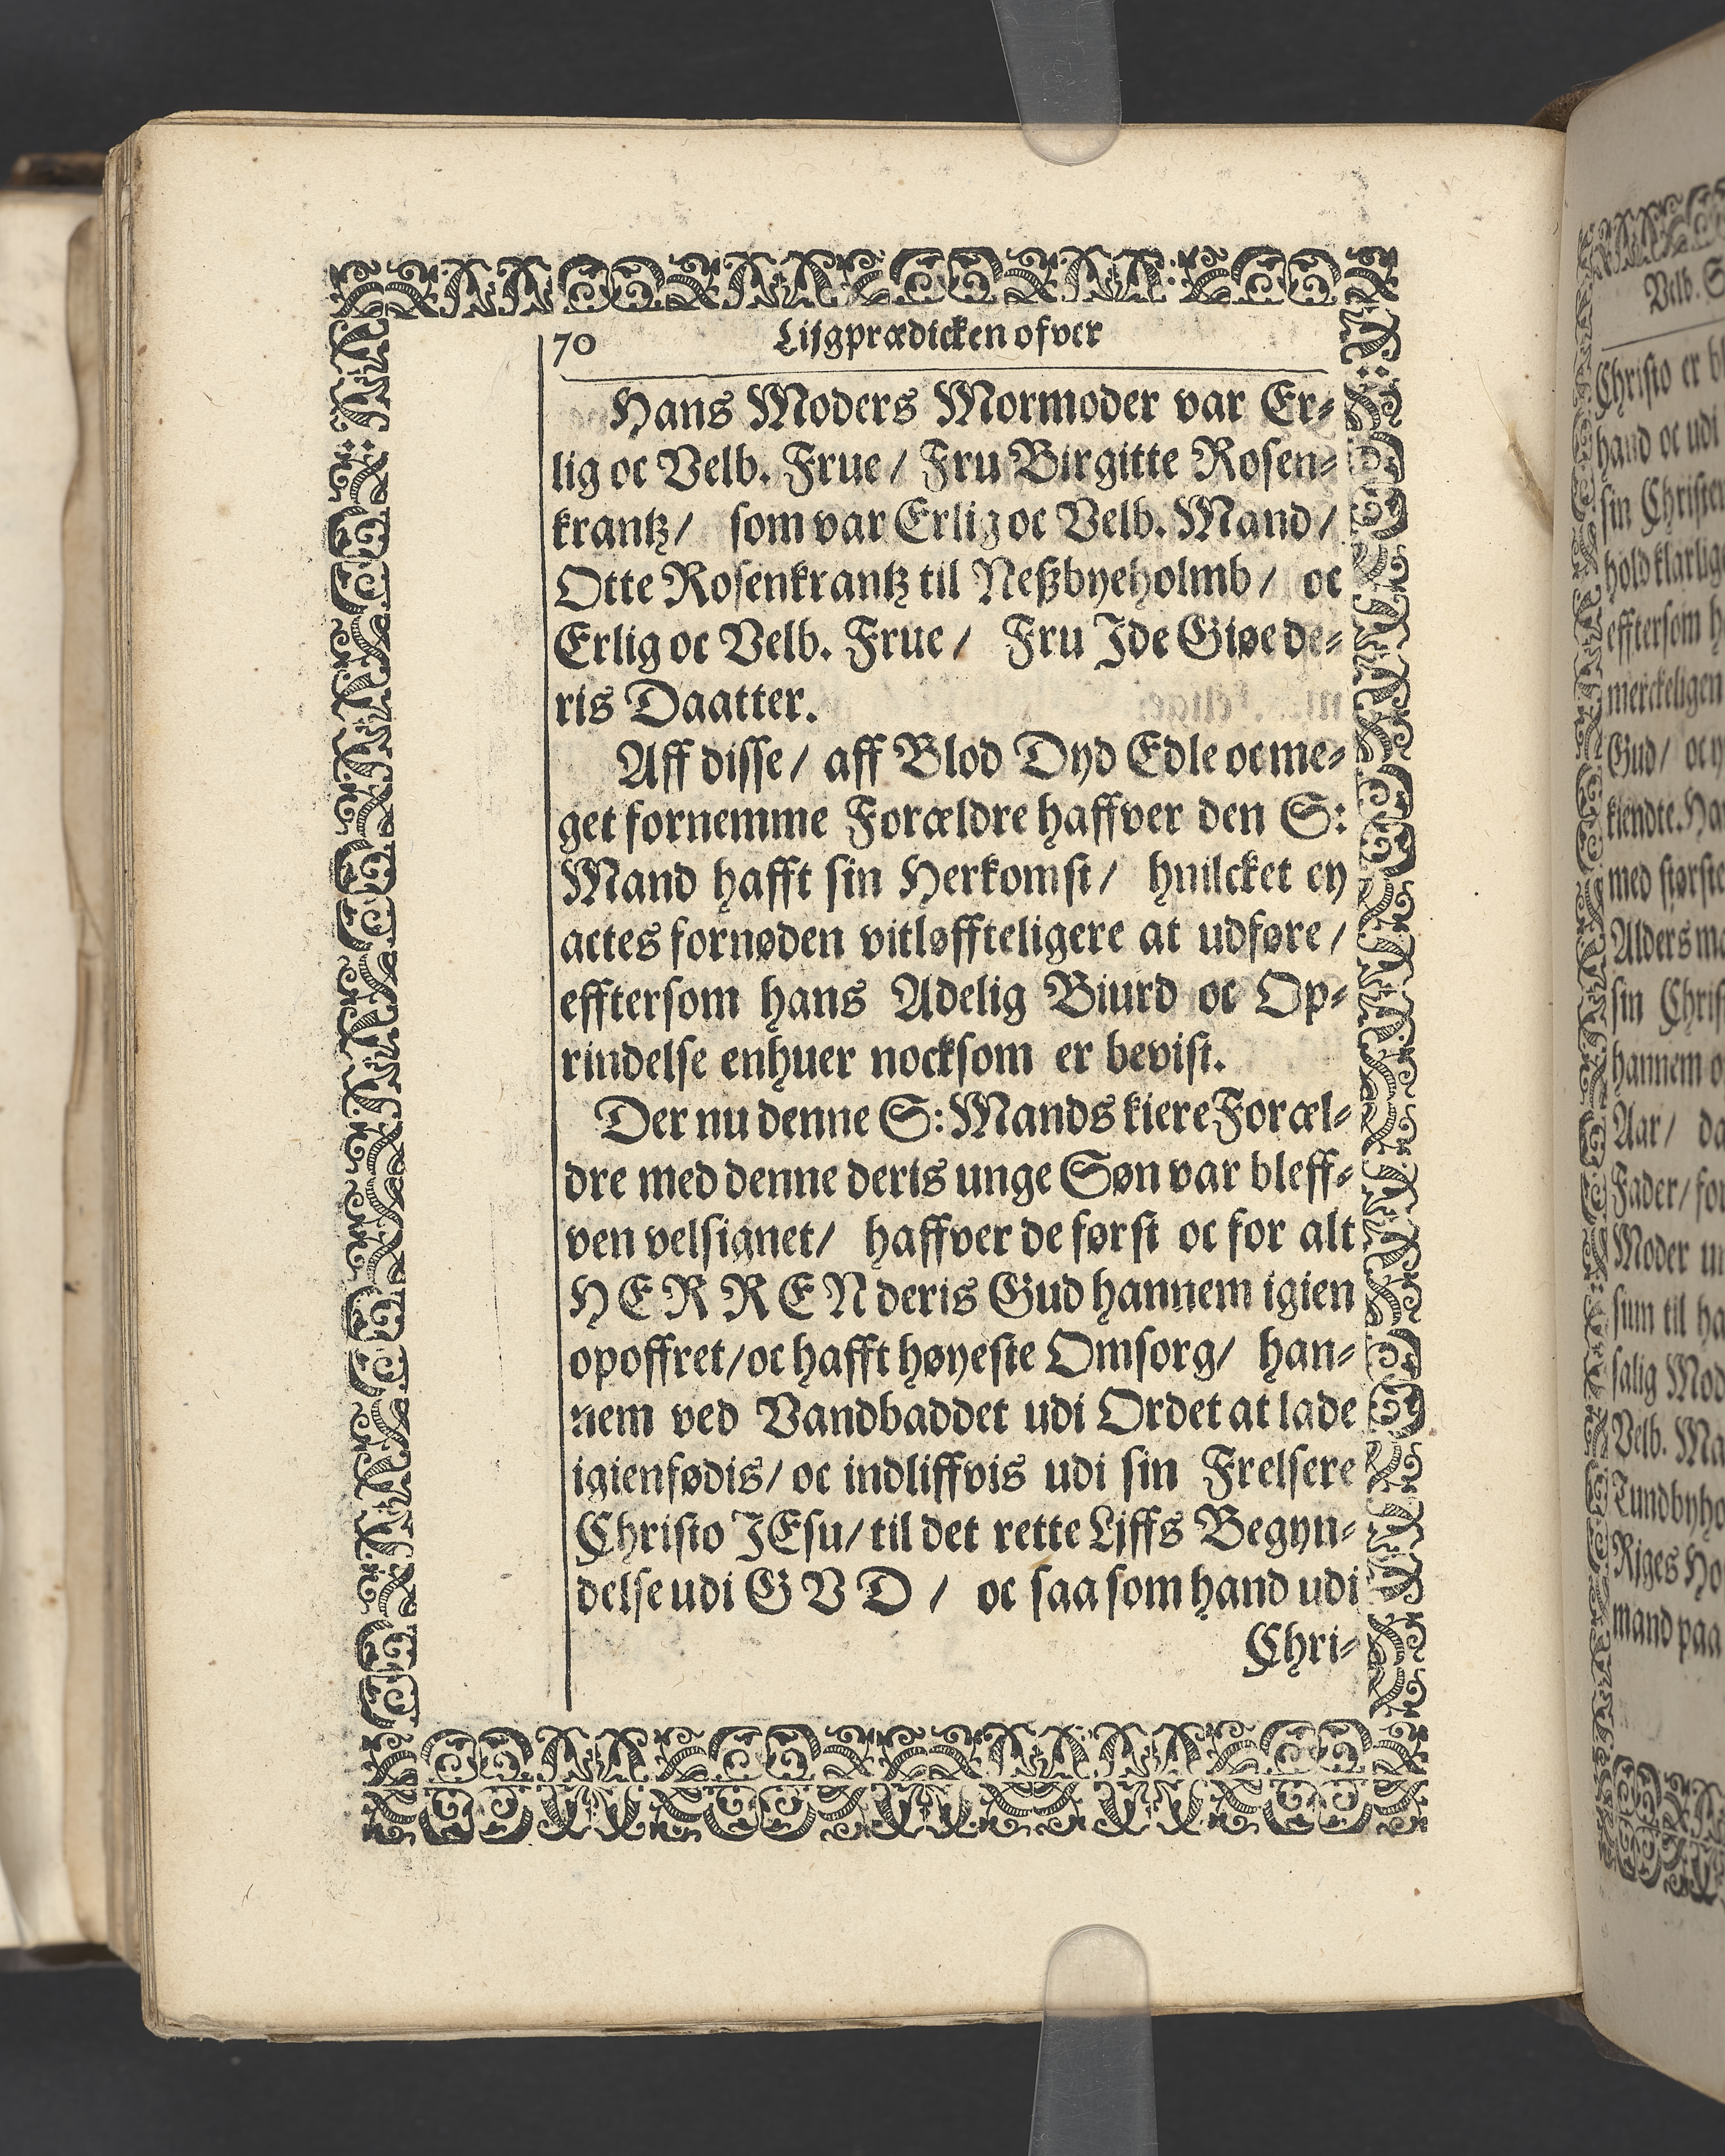 70 Lijgprædicken ofver
Hans Moders Mormoder var Er-
lig oc Velb. Frue / Fru Birgitte Rosen-
krantz / som var Erlig oc Velb. Mand /
Otte Rosenkrantz til Neßbyeholmb / oc
Erlig oc Velb. Frue / Fru Ide Giøe de-
ris Daatter.
Aff disse / aff Blod Dyd Edle oc me-
get fornemme Forældre haffver den S:
Mand hafft sin Herkomst / huilcket ey
actes fornøden vitløffteligere at udføre /
efftersom hans Adelig Biurd oc Op-
rindelse enhuer nocksom er bevist.
Der nu denne S: Mands kiere Foræl-
dre med denne deris unge Søn var bleff-
ven velsignet / haffver de først oc for alt
HERREN deris Gud hannem igien
opoffret / oc hafft høyeste Omsorg / han-
nem ved Vandbaddet udi Ordet at lade
igienfødis / oc indliffvis udi sin Frelsere
Christo JEsu / til det rette Liffs Begyn-
delse udi GVD / oc saa som hand udi
Chri-
Velb. S
Christo er bl
hand oc udi
sin Christen
hold klarlige
efftersom h
merckeligen
Gud / oc y
kiendte. Han
med største
Alders ma
sin Chris
hannem o
Aar / da
Fader / for
Moder un
sum til ha
salig Mod
Velb. Ma
Lundbyho
Riges Ho
mand paa